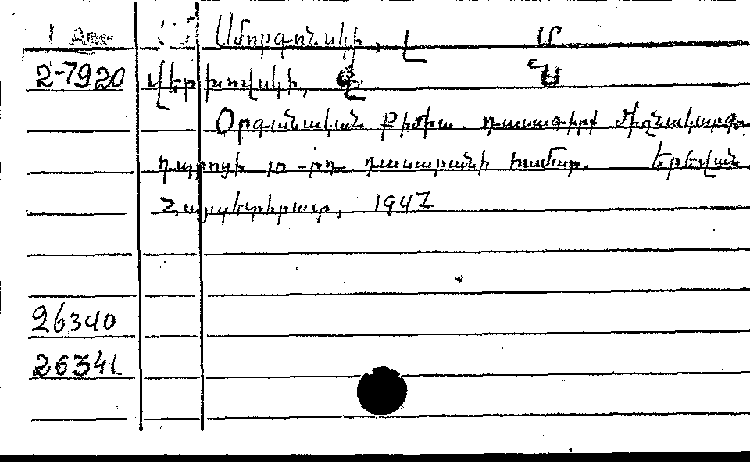 Սմորգոնսկի, Լ Մ
2-7920 Վերխովսկի, Վ Ն
Օրգանական քիմիա դասագիրք միջնակարգ
դպրոցի 10-րդ դասարանի համար. Երևան
Հայպետհրատ, 1947
26340
26341